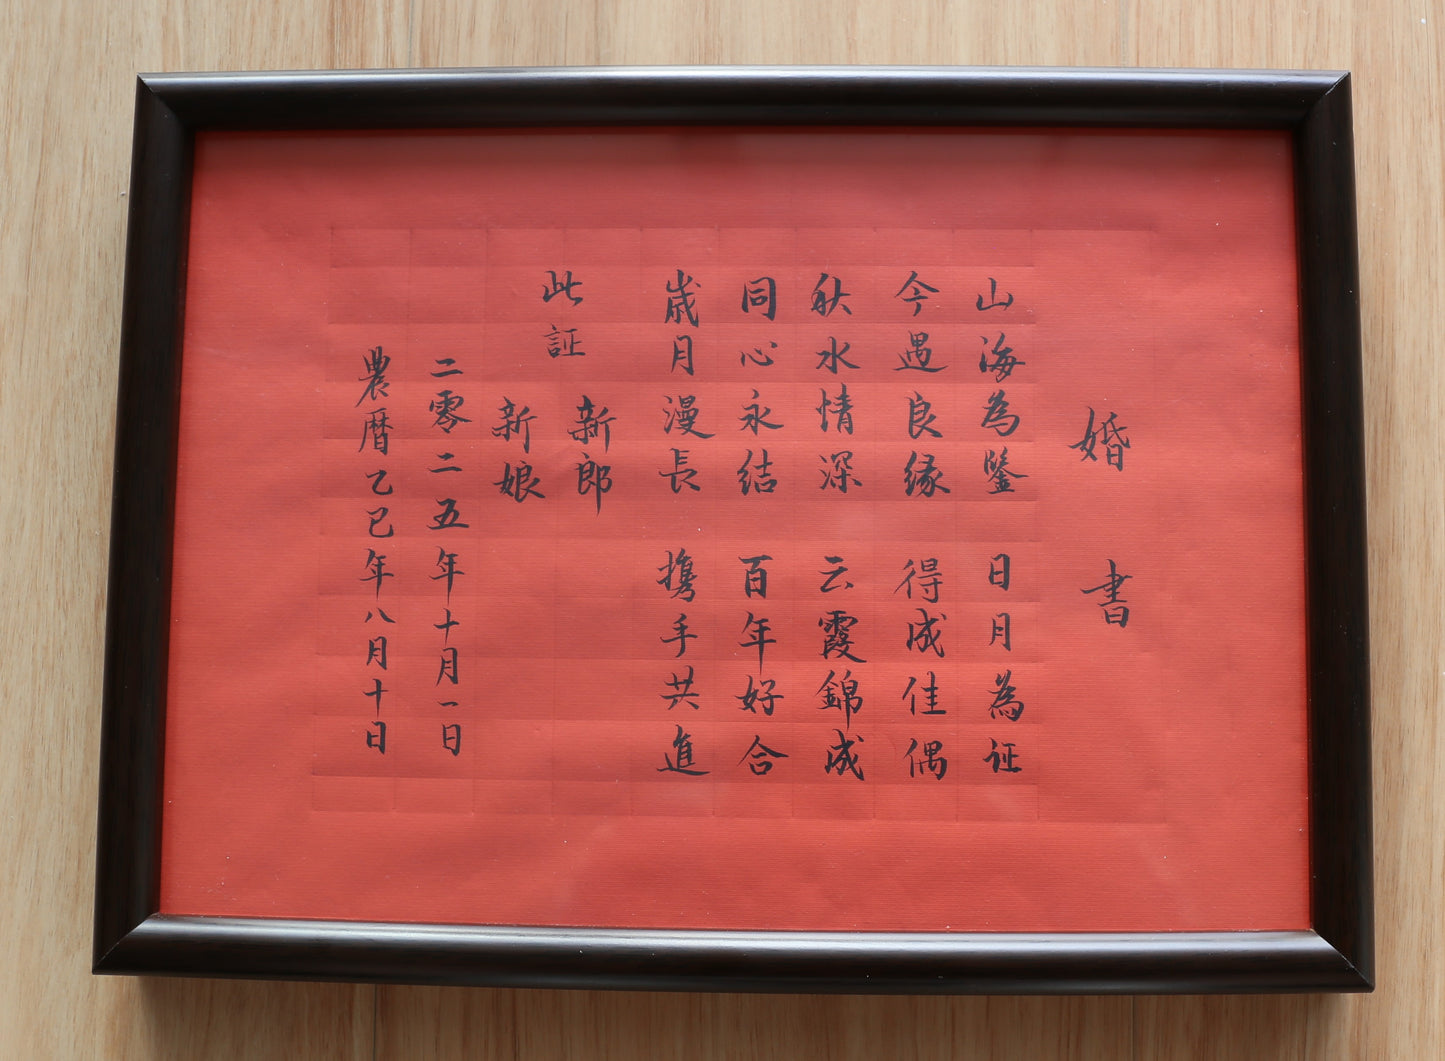 婚書
山海為鑒 日月為证
今遇良缘 得成佳偶
秋水情深 云霞錦成
同心永结 百年好合
歲月漫長 携手共進
此証
新郎
新娘
二零二五年十月一日
農曆乙巳年八月十日